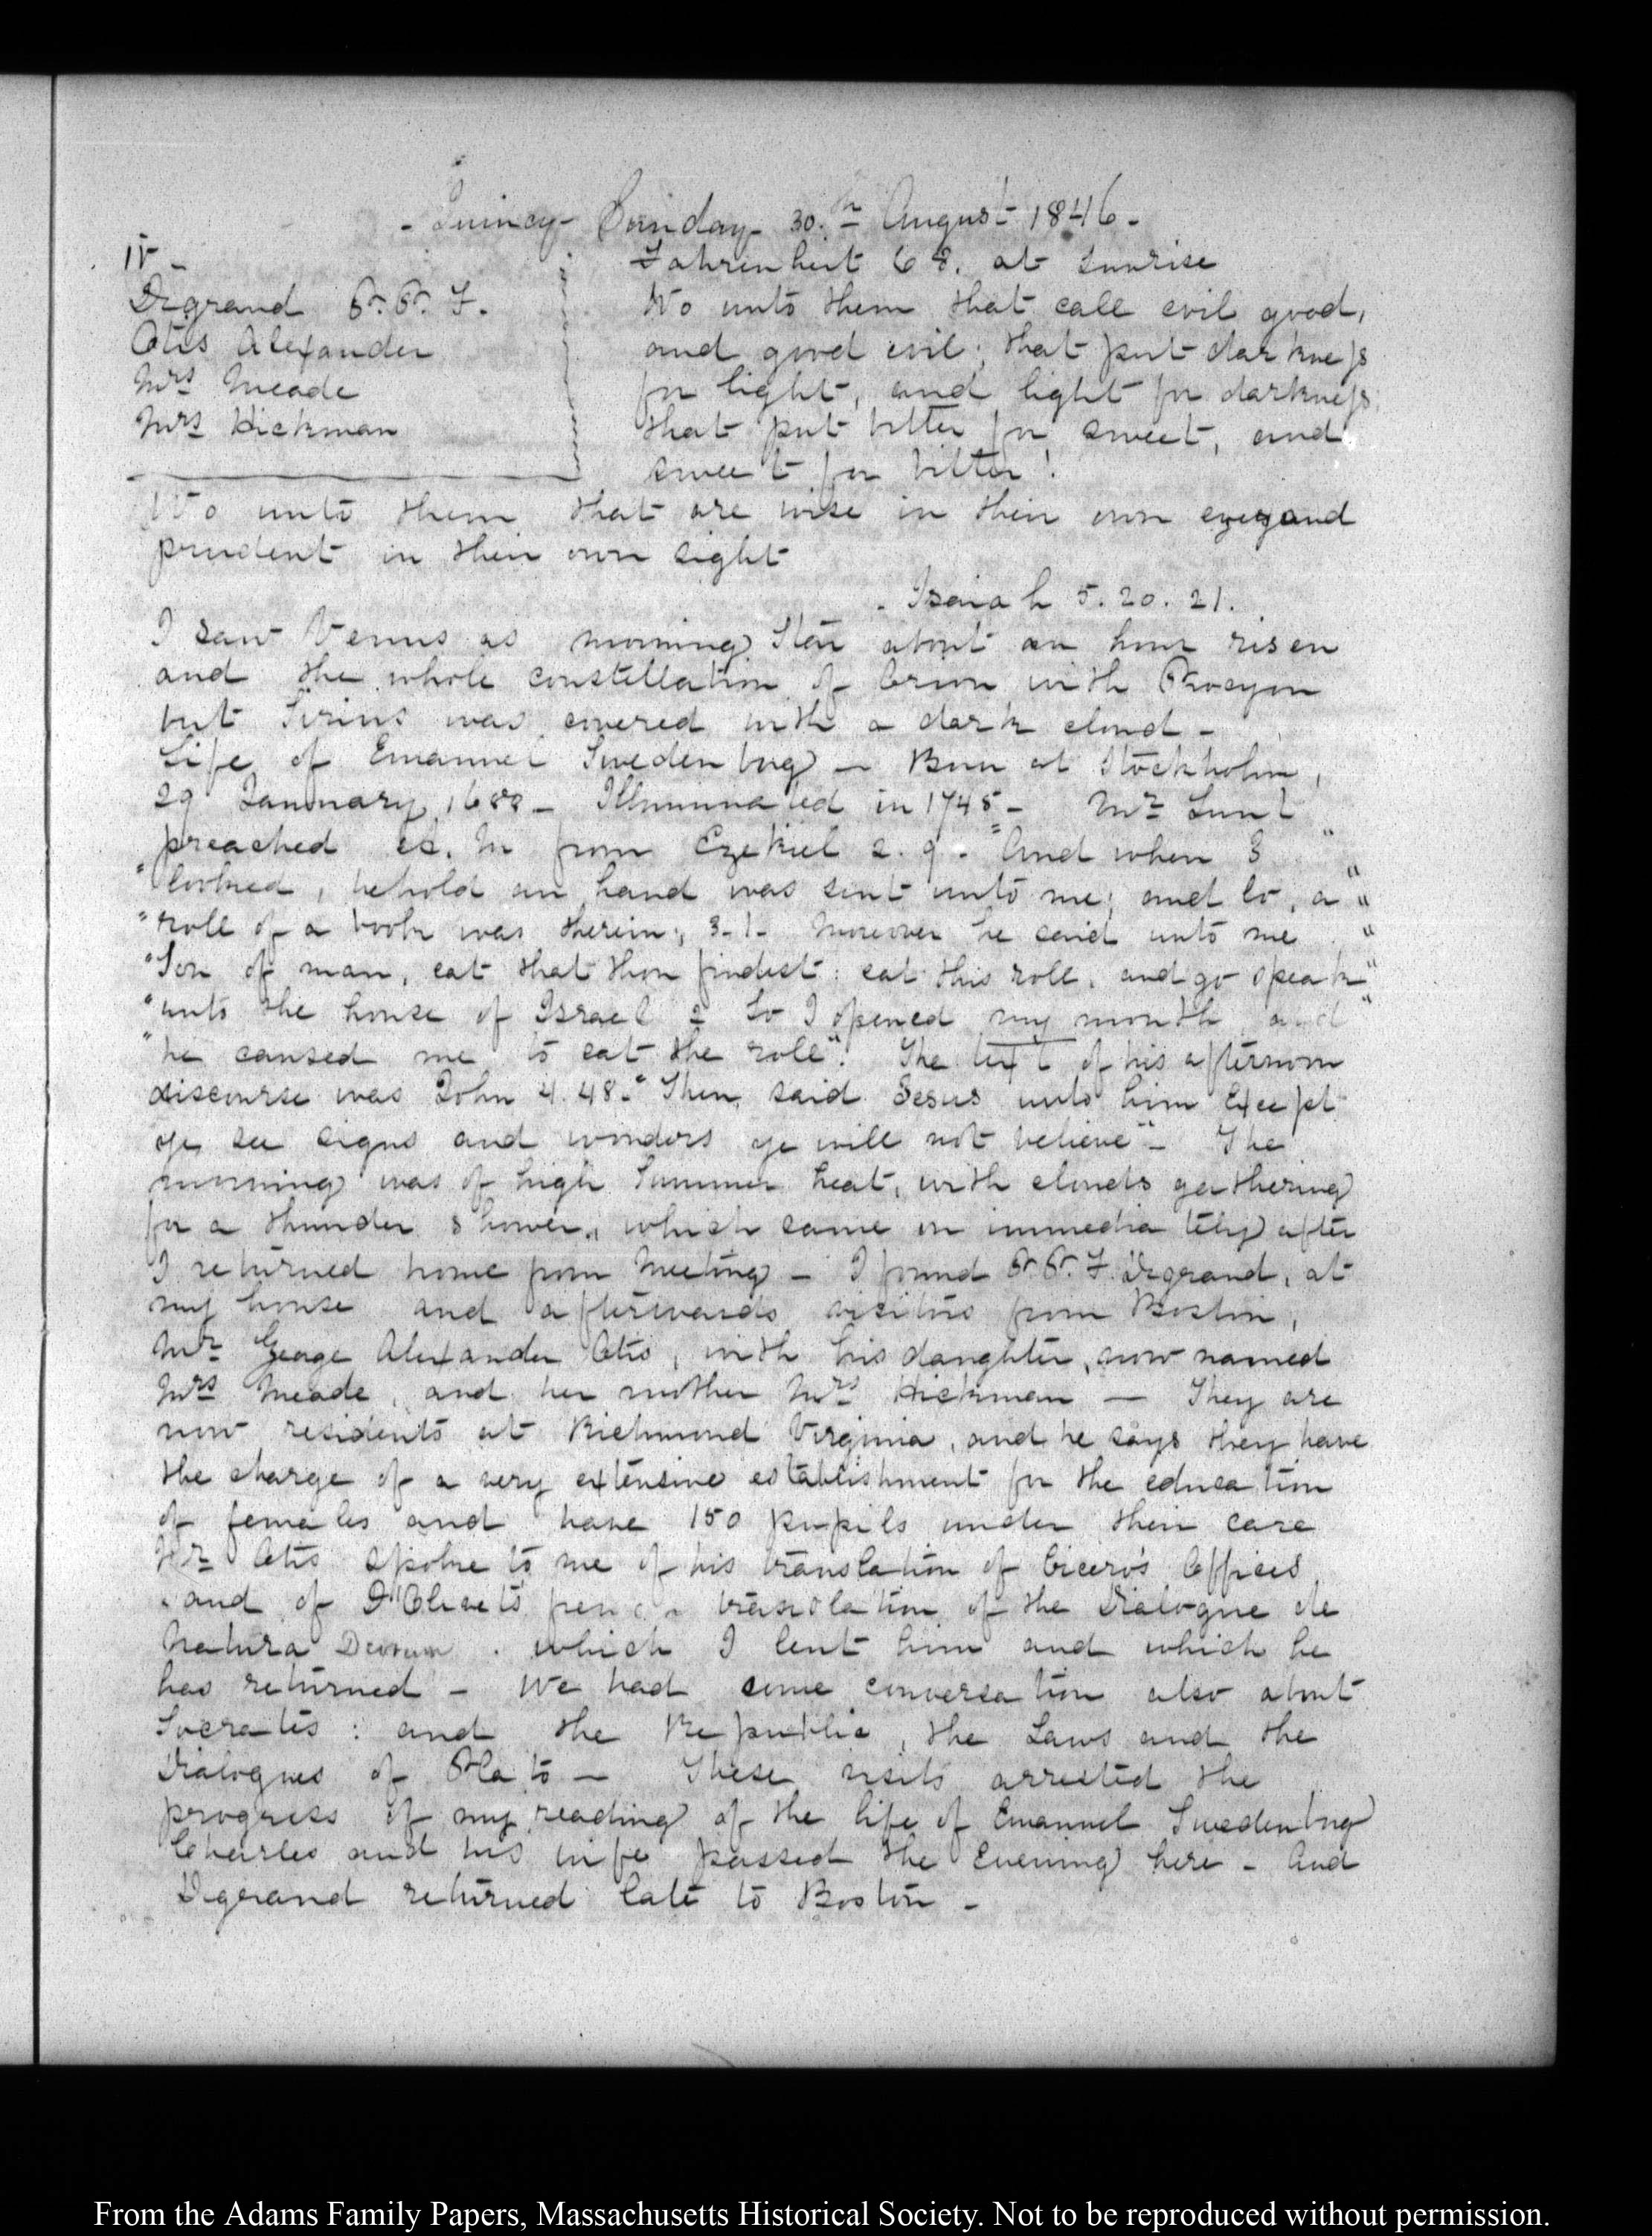 - Quincy - Sunday - 30.th August 1846 -
IV -
Degrand P. P. F.
Otis Alexander
Mrs Meade
Mrs Hickman
Fahrenheit 68. at sunrise
Wo unto them that call evil good,
and good evil; that put darkness
for light, and light for darkness;
that put bitter for sweet, and
sweet for bitter!
Wo unto them that are wise in their own eyes, and
prudent in their own sight
- Isaiah 5. 20. 21.
I saw Venus as morning Star about an hour risen
and the whole constellation of Orion with Procyon
but Sirius was covered with a dark cloud -
Life of Emanuel Swedenborg - Born at Stockholm,
29 January, 1688 - Illuminated in 1745 - Mr Lunt
preached A. M from Ezekiel 2. 9. "And when I "
"looked, behold an hand was sent unto me; and lo, a "
"roll of a book was therein; 3.1. Moreover he said unto me "
"Son of man, eat that thou findest: eat this roll, and go speak"
"unto the house of Israel 2 So I opened my mouth and"
"he caused me to eat the role". The text of his afternoon
discourse was John 4. 48. "Then said Jesus unto him Except
ye see signs and wonders ye will not believe" - The
morning was of high Summer heat, with clouds gathering
for a thunder shower, which came on immediately after
I returned home from Meeting - I found P. P. F. Degrand, at
my house and afterwards visitors from Boston,
Mr George Alexander Otis, with his daughter, now named
Mrs Meade, and her mother Mrs Hickman - They are
now residents at Richmond Virginia, and he says they have
the charge of a very extensive establishment for the education
of females and have 150 pupils under their care
Mr Otis spoke to me of his translation of Cicero's Offices
and of D'Olivet's translation of the Dialogue de
Natura Deorum. which I lent him and which he
has returned - We had some conversation also about
Socrates: and the Republic, the Laws and the
Dialogues of Plato - These visits arrested the
progress of my reading of the life of Emanuel Swedenborg
Charles and his wife passed the Evening here - And
Degrand returned late to Boston -
From the Adams Family Papers, Massachusetts Historical Society. Not to be reproduced without permission.